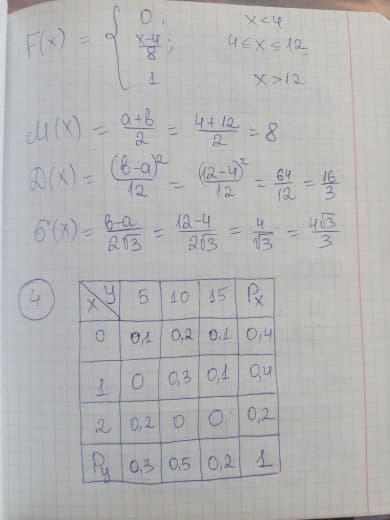 F(x) = { 0; x<4
x-4/8; 4≤x≤12
1 x>12
M(X) = a+b/2 = 4+12/2 = 8
D(X) = (b-a)²/12 = (12-4)²/12 = 64/12 = 16/3
σ(X) = b-a/2√3 = 12-4/2√3 = 4/√3 = 4√3/3
4
X Y 5 10 15 Px
0 0,1 0,2 0,1 0,4
1 0 0,3 0,1 0,4
2 0,2 0 0 0,2
Py 0,3 0,5 0,2 1